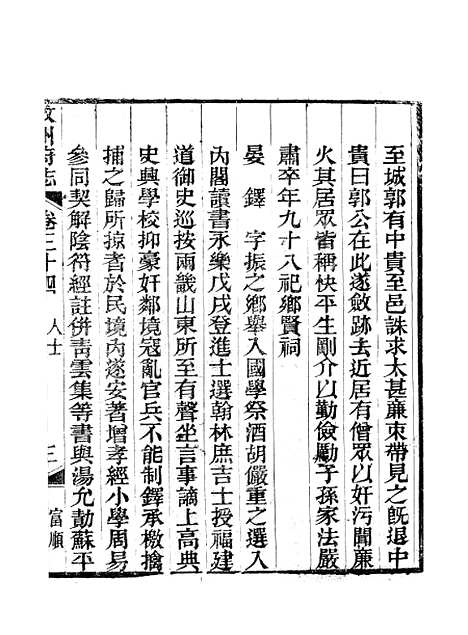 至城郭有中貴至邑誅求太甚廉束帶見之旣退中
貴曰郭公在此遂斂跡去近居有僧眾以奸污聞廉
火其居眾皆稱快平生剛介以勤儉勵子孫家法嚴
肅卒年九十八祀鄉賢祠
晏鐸字振之鄉舉入國學祭酒胡儼重之選入
內閣讀書永樂戊戌登進士選翰林庶吉士授福建
道御史巡按兩畿山東所至有聲坐言事謫上高典
史興學校抑豪奸鄰境寇亂官兵不能制鐸承檄擒
捕之歸所掠者於民境內遂安著增孝經小學周易
參同契解陰符經註併靑雲集等書與湯允勣蘇平
敘州府志 卷三十四 人士 三 富順